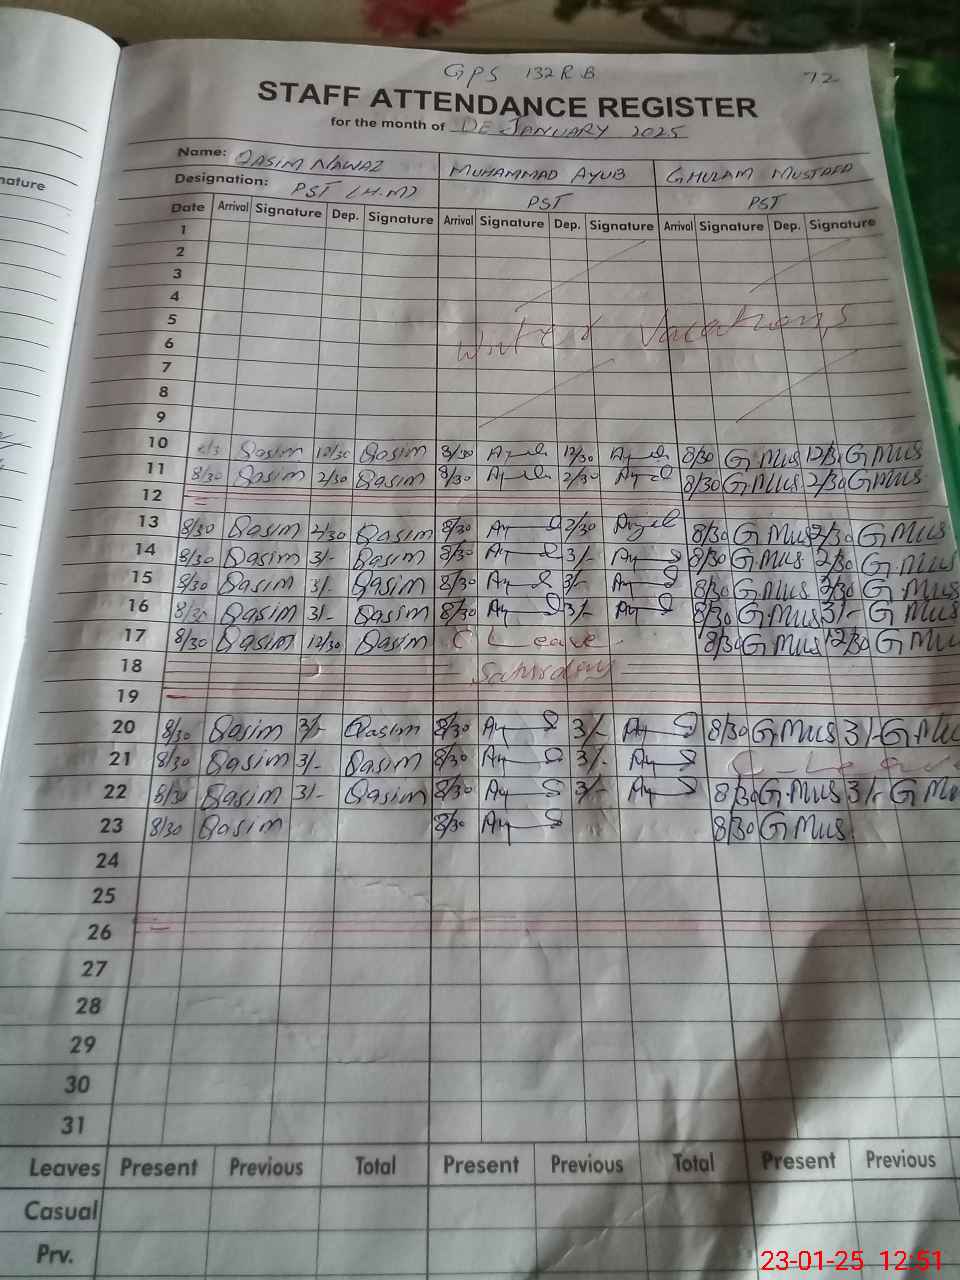 GPS 132 R B 72
STAFF ATTENDANCE REGISTER
for the month of DE JANUARY 2025
nature
Name: QASIM NAWAZ MUHAMMAD AYUB GHULAM MUSTAFA
Designation: PST (H.M) PST PST
Date Arrival Signature Dep. Signature Arrival Signature Dep. Signature Arrival Signature Dep. Signature
1
2
3
4
5 Winter Vacations
6
7
8
9
10 Qasim 12/30 Qasim 8/30 12/30 8/30 G Mus 12/3 G Mus
11 8/30 Qasim 2/30 Qasim 8/30 2/30 8/30 G Mus 2/30 G Mus
12
13 8/30 Qasim 2/30 Qasim 8/30 2/30 8/30 G Mus 2/30 G Mus
14 8/30 Qasim 3/- Qasim 8/30 3/- 8/30 G Mus 2/30 G Mus
15 8/30 Qasim 3/- Qasim 8/30 3/- 8/30 G Mus 2/30 G Mus
16 8/30 Qasim 3/- Qasim 8/30 3/- 8/30 G Mus 3/- G Mus
17 8/30 Qasim 12/30 Qasim C Leave 8/30 G Mus 12/30 G Mu
18 Saturday
19
20 8/30 Qasim 3/- Qasim 8/30 3/- 8/30 G Mus 3/- G Mu
21 8/30 Qasim 3/- Qasim 8/30 3/- C Leav
22 8/30 Qasim 3/- Qasim 8/30 3/- 8/30 G Mus 3/- G Mu
23 8/30 Qasim 8/30 8/30 G Mus
24
25
26
27
28
29
30
31
Leaves Present Previous Total Present Previous Total Present Previous
Casual
Prv.
23-01-25 12:51